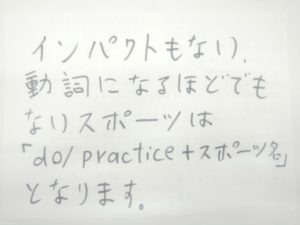 インパクトもない、
動詞になるほどでも
ないスポーツは
「do/practice+スポーツ名」
となります。